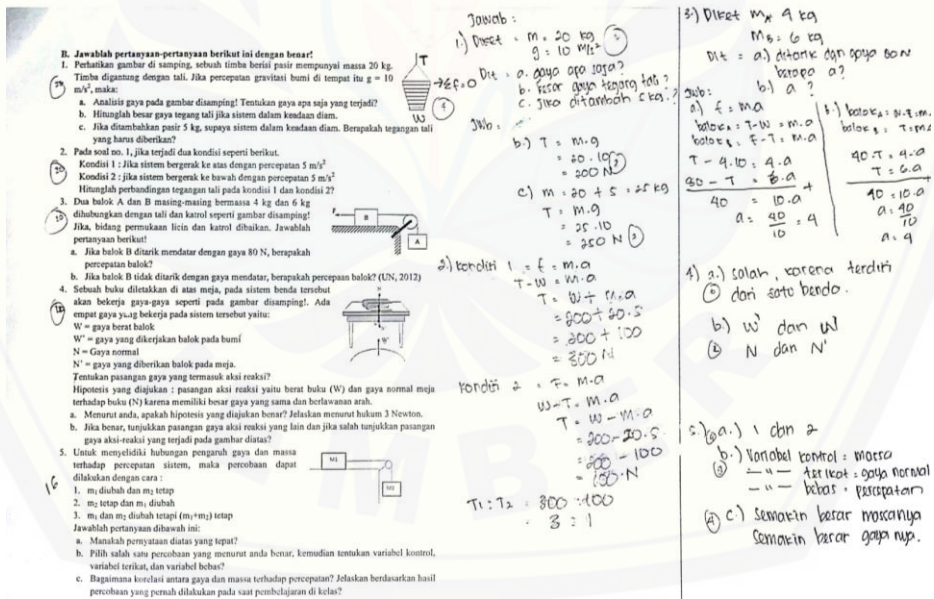 B. Jawablah pertanyaan-pertanyaan berikut ini dengan benar!
1. Perhatikan gambar di samping, sebuah timba berisi pasir mempunyai massa 20 kg.
Timba digantung dengan tali. Jika percepatan gravitasi bumi di tempat itu g = 10
m/s², maka:
a. Analisis gaya pada gambar disamping! Tentukan gaya apa saja yang terjadi?
b. Hitunglah besar gaya tegang tali jika sistem dalam keadaan diam.
c. Jika ditambahkan pasir 5 kg, supaya sistem dalam keadaan diam. Berapakah tegangan tali
yang harus diberikan?
2. Pada soal no. 1, jika terjadi dua kondisi seperti berikut.
20
Kondisi 1 : Jika sistem bergerak ke atas dengan percepatan 5 m/s²
Kondisi 2 : jika sistem bergerak ke bawah dengan percepatan 5 m/s²
Hitunglah perbandingan tegangan tali pada kondisi 1 dan kondisi 2?
3. Dua balok A dan B masing-masing bermassa 4 kg dan 6 kg
20
dihubungkan dengan tali dan katrol seperti gambar disamping!
Jika, bidang permukaan licin dan katrol dibaikan. Jawablah
pertanyaan berikut!
a. Jika balok B ditarik mendatar dengan gaya 80 N, berapakah
percepatan balok?
b. Jika balok B tidak ditarik dengan gaya mendatar, berapakah percepaan balok? (UN, 2012)
4. Sebuah buku diletakkan di atas meja, pada sistem benda tersebut
akan bekerja gaya-gaya seperti pada gambar disamping!. Ada
empat gaya yang bekerja pada sistem tersebut yaitu:
W = gaya berat balok
W' = gaya yang dikerjakan balok pada bumi
N = Gaya normal
N' = gaya yang diberikan balok pada meja.
Tentukan pasangan gaya yang termasuk aksi reaksi?
Hipotesis yang diajukan : pasangan aksi reaksi yaitu berat buku (W) dan gaya normal meja
terhadap buku (N) karena memiliki besar gaya yang sama dan berlawanan arah.
a. Menurut anda, apakah hipotesis yang diajukan benar? Jelaskan menurut hukum 3 Newton.
b. Jika benar, tunjukkan pasangan gaya aksi reaksi yang lain dan jika salah tunjukkan pasangan
gaya aksi-reaksi yang terjadi pada gambar diatas?
5. Untuk menyelidiki hubungan pengaruh gaya dan massa
terhadap percepatan sistem, maka percobaan dapat
dilakukan dengan cara :
16
1. m₁ diubah dan m₂ tetap
2. m₂ tetap dan m₁ diubah
3. m₁ dan m₂ diubah tetapi (m₁+m₂) tetap
Jawablah pertanyaan dibawah ini:
a. Manakah pernyataan diatas yang tepat?
b. Pilih salah satu percobaan yang menurut anda benar, kemudian tentukan variabel kontrol,
variabel terikat, dan variabel bebas?
c. Bagaimana korelasi antara gaya dan massa terhadap percepatan? Jelaskan berdasarkan hasil
percobaan yang pernah dilakukan pada saat pembelajaran di kelas?
T
→ΣF=0
W
4
B
A
M1
M2
Jawab :
1.) Diket : m = 20 kg
g = 10 m/s²
Dit : a. gaya apa saja?
b. besar gaya tegang tali?
c. Jika ditambah 5kg.?
Jwb :
b.) T = m.g
= 20.10
= 200 N
c) m = 20 + 5 = 25 kg
T = m.g
= 25.10
= 250 N
2.) kondisi 1 = f = m.a
T-W = m.a
T = W + m.a
= 200 + 20.5
= 200 + 100
= 300 N
kondisi 2 = F = m.a
W-T = m.a
T = W - m.a
= 200 - 20.5
= 200 - 100
= 100 N
T1 : T2 = 300 : 100
= 3 : 1
3.) Diket mA 4 kg
MB = 6 kg
Dit = a.) ditarik dgn gaya 80N
berapa a?
b.) a ?
Jwb:
a.) f = ma
balok A = T-W = m.a
balok B = F-T = m.a
T - 4.10 = 4.a
80 - T = 6.a +
40 = 10.a
a = 40/10 = 4
b.) balok A =
balok B = T = m.a
40-T = 4.a
T = 6.a +
40 = 10.a
a = 40/10
a = 4
4) a.) salah, karena terdiri
dari satu benda.
b.) W' dan W
N dan N'
5.) a.) 1 dan 2
b.) Variabel kontrol = massa
— " — terikat = gaya normal
— " — bebas = percepatan
c.) semakin besar massanya
semakin besar gayanya.